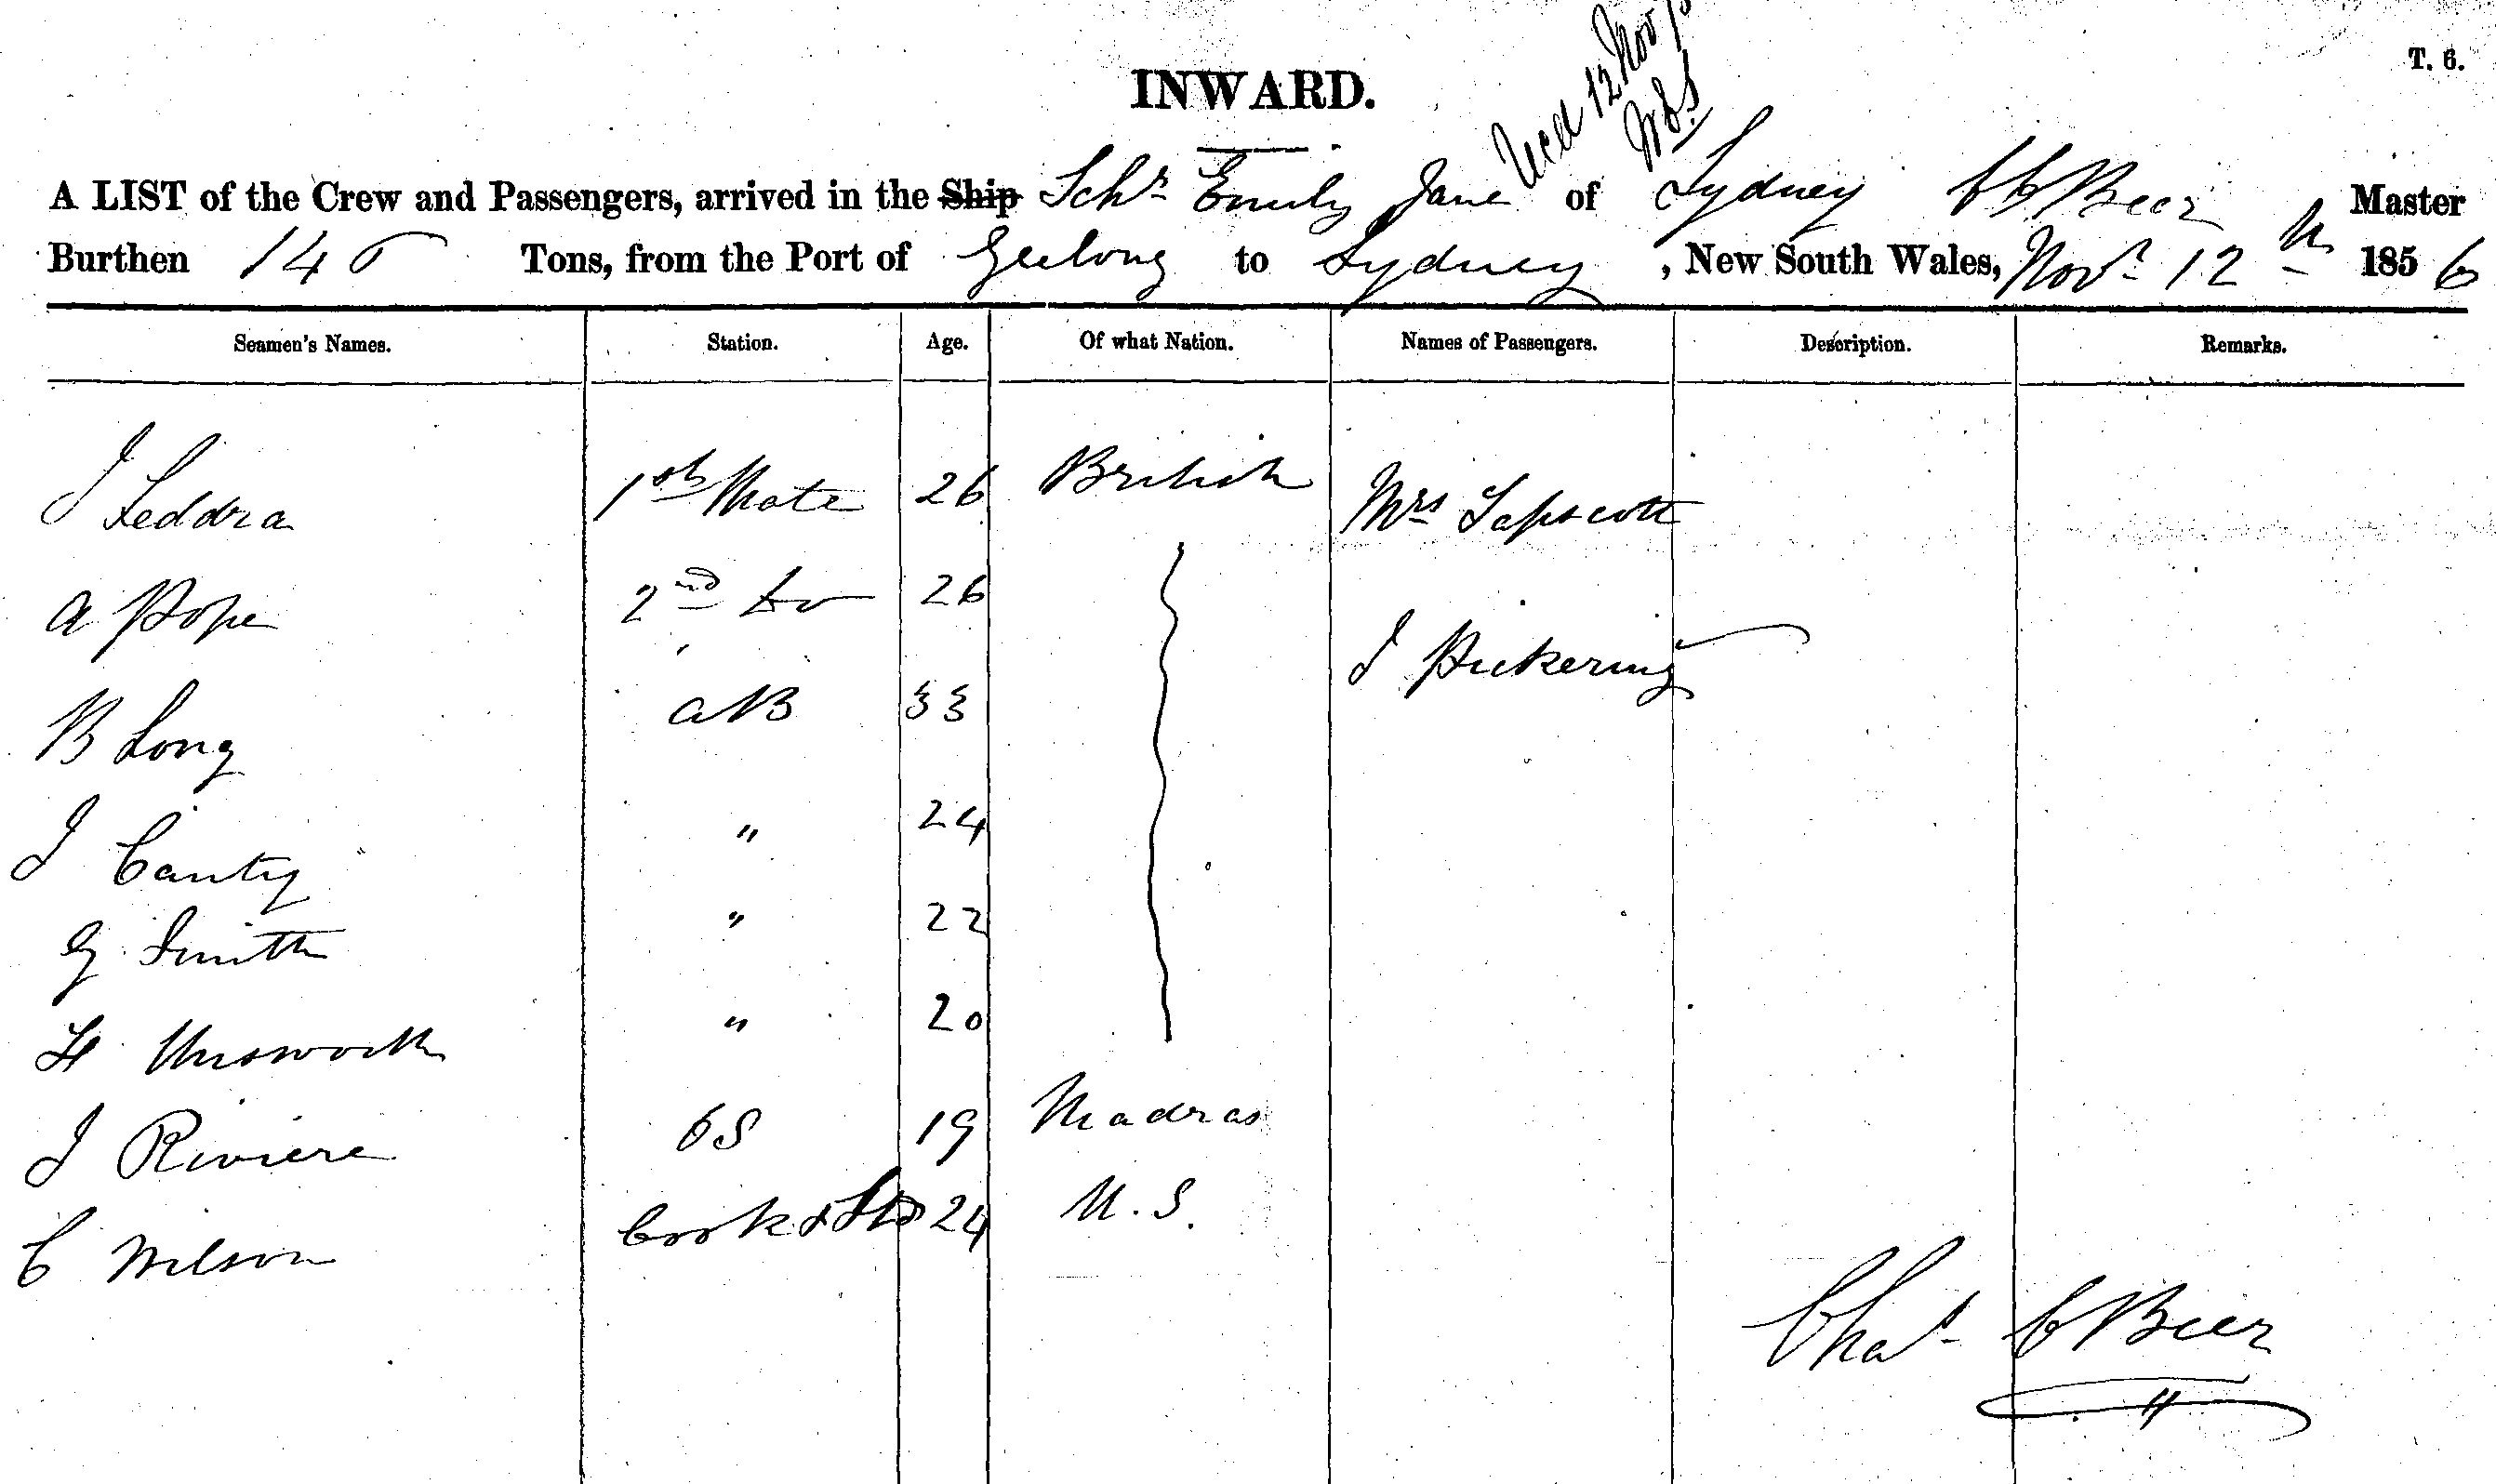 T. 6.
INWARD.
12 Nov
A LIST of the Crew and Passengers, arrived in the Ship Schr Emily Jane of Sydney C C Beer Master
Burthen 140 Tons, from the Port of Geelong to Sydney, New South Wales, Novr 12th 1856
Seamen's Names. Station. Age. Of what Nation. Names of Passengers. Description. Remarks.
J Leddra 1st Mate 26 British Mrs Lapscott
A Pope 2nd Do 26
J Pickering
B Long AB 33
J Canty " 24
G Smith " 22
H Unsworth " 20
J Riviere OS 19 Madras
C Wilson Cook & Std 24 U.S.
Chas C Beer